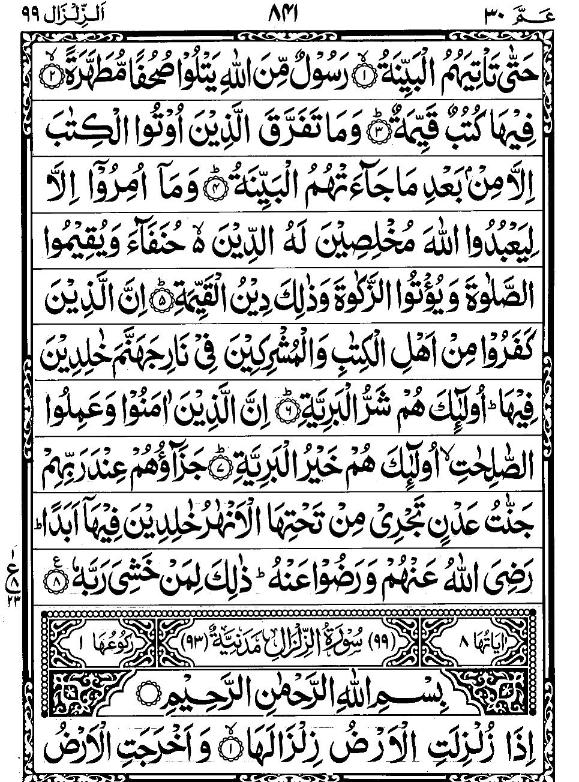 عـمّ ٣٠ ٨٤١ اَلزِّلْزَال ٩٩
حَتّٰى تَاْتِيَهُمُ الْبَيِّنَةُ ۙ﴿١﴾ رَسُوْلٌ مِّنَ اللّٰهِ يَتْلُوْا صُحُفًا مُّطَهَّرَةً ۙ﴿٢﴾
فِيْهَا كُتُبٌ قَيِّمَةٌ ؕ﴿٣﴾ وَمَا تَفَرَّقَ الَّذِيْنَ اُوْتُوا الْكِتٰبَ
اِلَّا مِنْۢ بَعْدِ مَا جَآءَتْهُمُ الْبَيِّنَةُ ؕ﴿٤﴾ وَمَآ اُمِرُوْٓا اِلَّا
لِيَعْبُدُوا اللّٰهَ مُخْلِصِيْنَ لَهُ الدِّيْنَ ۙ۬ حُنَفَآءَ وَيُقِيْمُوا
الصَّلٰوةَ وَيُؤْتُوا الزَّكٰوةَ وَذٰلِكَ دِيْنُ الْقَيِّمَةِ ؕ﴿٥﴾ اِنَّ الَّذِيْنَ
كَفَرُوْا مِنْ اَهْلِ الْكِتٰبِ وَالْمُشْرِكِيْنَ فِيْ نَارِ جَهَنَّمَ خٰلِدِيْنَ
فِيْهَا ؕ اُولٰٓئِكَ هُمْ شَرُّ الْبَرِيَّةِ ؕ﴿٦﴾ اِنَّ الَّذِيْنَ اٰمَنُوْا وَعَمِلُوا
الصّٰلِحٰتِ ۙ اُولٰٓئِكَ هُمْ خَيْرُ الْبَرِيَّةِ ؕ﴿٧﴾ جَزَآؤُهُمْ عِنْدَ رَبِّهِمْ
جَنّٰتُ عَدْنٍ تَجْرِيْ مِنْ تَحْتِهَا الْاَنْهٰرُ خٰلِدِيْنَ فِيْهَآ اَبَدًا ؕ
رَضِيَ اللّٰهُ عَنْهُمْ وَرَضُوْا عَنْهُ ؕ ذٰلِكَ لِمَنْ خَشِيَ رَبَّهٗ ﴿٨﴾
١ ع ٨ ٢٣
اٰيَاتُهَا ٨ (٩٩) سُوْرَةُ الزِّلْزَالِ مَدَنِيَّةٌ (٩٣) رُكُوْعُهَا ١
بِسْمِ اللّٰهِ الرَّحْمٰنِ الرَّحِيْمِ
اِذَا زُلْزِلَتِ الْاَرْضُ زِلْزَالَهَا ۙ﴿١﴾ وَاَخْرَجَتِ الْاَرْضُ